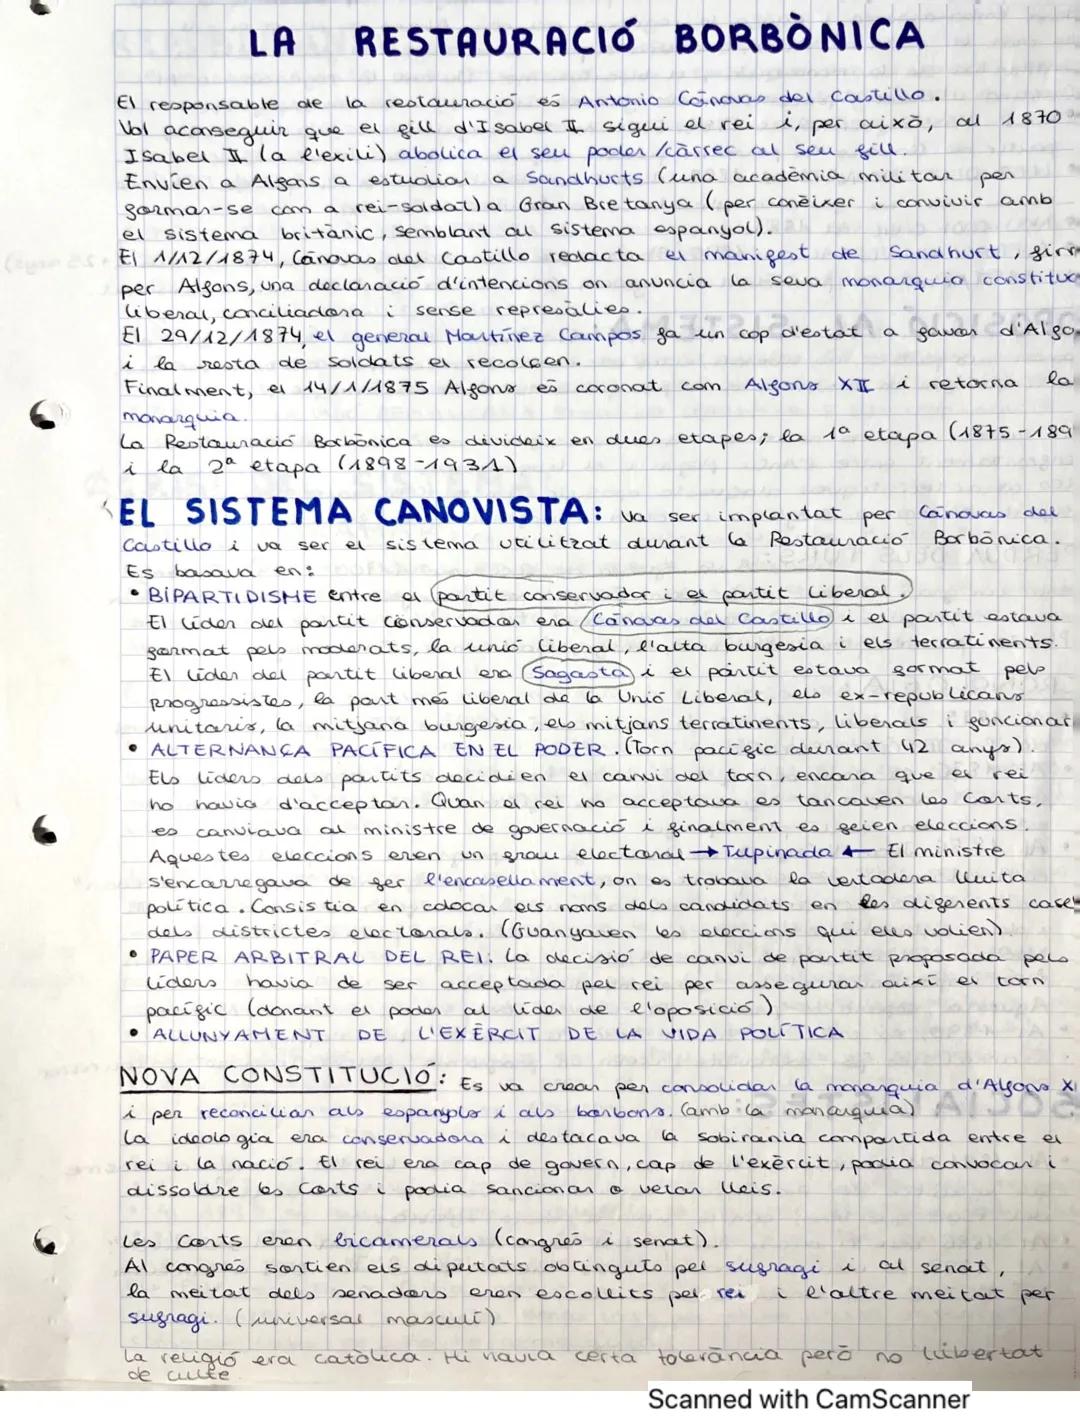 LA RESTAURACIÓ BORBÒNICA
El responsable de la restauració és Antonio Cánovas del Castillo.
Vol aconseguir que el fill d'Isabel II sigui el rei i, per això, al 1870
Isabel II (a l'exili) abolica el seu poder/càrrec al seu fill.
Envien a Alfons a estudiar a Sandhurts (una acadèmia militar per
formar-se com a rei-soldat) a Gran Bretanya (per conèixer i convivir amb
el sistema britànic, semblant al sistema espanyol).
El 1/12/1874, Cánovas del Castillo redacta el manifest de Sandhurt, firm
per Alfons, una declaració d'intencions on anuncia la seva monarquia constituc
liberal, conciliadora i sense represàlies.
El 29/12/1874, el general Martínez Campos fa un cop d'estat a favor d'Alfo
i la resta de soldats el recolcen.
Finalment, el 14/1/1875 Alfons és coronat com Alfons XII i retorna la
monarquia.
La Restauració Borbònica es divideix en dues etapes; la 1ª etapa (1875-189
i la 2ª etapa (1898-1931)
EL SISTEMA CANOVISTA: va ser implantat per Cánovas del
Castillo i va ser el sistema utilitzat durant la Restauració Borbònica.
Es basava en:
• BIPARTIDISME entre el partit conservador i el partit liberal.
El líder del partit conservador era Cánovas del Castillo i el partit estava
format pels moderats, la unió liberal, l'alta burgesia i els terratinents.
El líder del partit liberal era Sagasta i el partit estava format pels
progressistes, la part més liberal de la Unió Liberal, els ex-republicans
unitaris, la mitjana burgesia, els mitjans terratinents, liberals i funcionar
• ALTERNANÇA PACÍFICA EN EL PODER. (Torn pacífic durant 42 anys).
Els líders dels partits decidien el canvi del torn, encara que el rei
ho havia d'acceptar. Quan el rei ho acceptava es tancaven les Corts,
es canviava al ministre de governació i finalment es feien eleccions.
Aquestes eleccions eren un frau electoral → Tupinada ← El ministre
s'encarregava de fer l'encasellament, on es trobava la vertadera lluita
política. Consistia en colocar els noms dels candidats en les diferents case
dels districtes electorals. (Guanyaven les eleccions qui ells volien)
• PAPER ARBITRAL DEL REI: La decisió de canvi de partit proposada pels
líders havia de ser acceptada pel rei per assegurar així el torn
pacífic (donant el poder al líder de l'oposició)
• ALLUNYAMENT DE L'EXÈRCIT DE LA VIDA POLÍTICA
NOVA CONSTITUCIÓ: Es va crear per consolidar la monarquia d'Alfons X
i per reconciliar als espanyols i als borbons. (amb la monarquia)
La ideologia era conservadora i destacava la sobirania compartida entre el
rei i la nació. El rei era cap de govern, cap de l'exèrcit, podia convocar i
dissoldre les Corts i podia sancionar o vetar lleis.
Les Corts eren bicamerals (congrés i senat).
Al congrés sortien els diputats obtinguts pel sufragi i al senat,
la meitat dels senadors eren escollits pel rei i l'altre meitat per
sufragi. (universal masculí)
La religió era catòlica. Hi havia certa tolerància però no llibertat
de culte.
Scanned with CamScanner